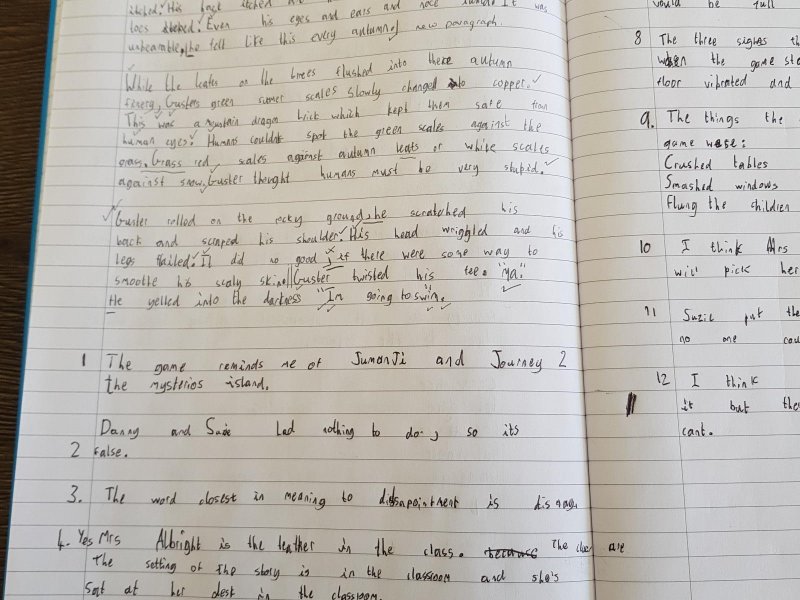 itched. His back itched
toes itched. Even his eyes and ears and nose It was
unbearable, he felt like this every autumn, new paragraph
While the leafs on the trees flushed into there autumn
finery, Gusters green sumer scales slowly changed into copper.
This was a mountain dragon trick which kept them safe from
human eyes. Humans couldnt spot the green scales against the
grass. Grass red scales against autumn leafs or white scales
against snow. Guster thought humans must be very stupid.
Guster rolled on the rocky ground, he scratched his
back and scraped his shoulder. His head wriggled and his
legs flailed. It did no good, if there were some way to
smoothe his scaly skin. Guster twisted his "Ma."
He yelled into the darkness "Im going to swim."
1 The game reminds me of JumanJi and Journey 2
the mysterios island.
Danny and had nothing to do, so its
2 false.
3. The word closest in meaning to dissapointment is
4. Yes Mrs Albright is the teather in the class. because The are
The setting of the story is in the classroom and she's
Sat at her desk in the classroom.
would be full
8 The three signes
when the game
floor vibrated and
9. The things the
game were:
Crushed tables
Smashed windows
Flung the children
10 I think Mrs
will pick her
11 Suzie put the
no one
12 I think
it but
cant.